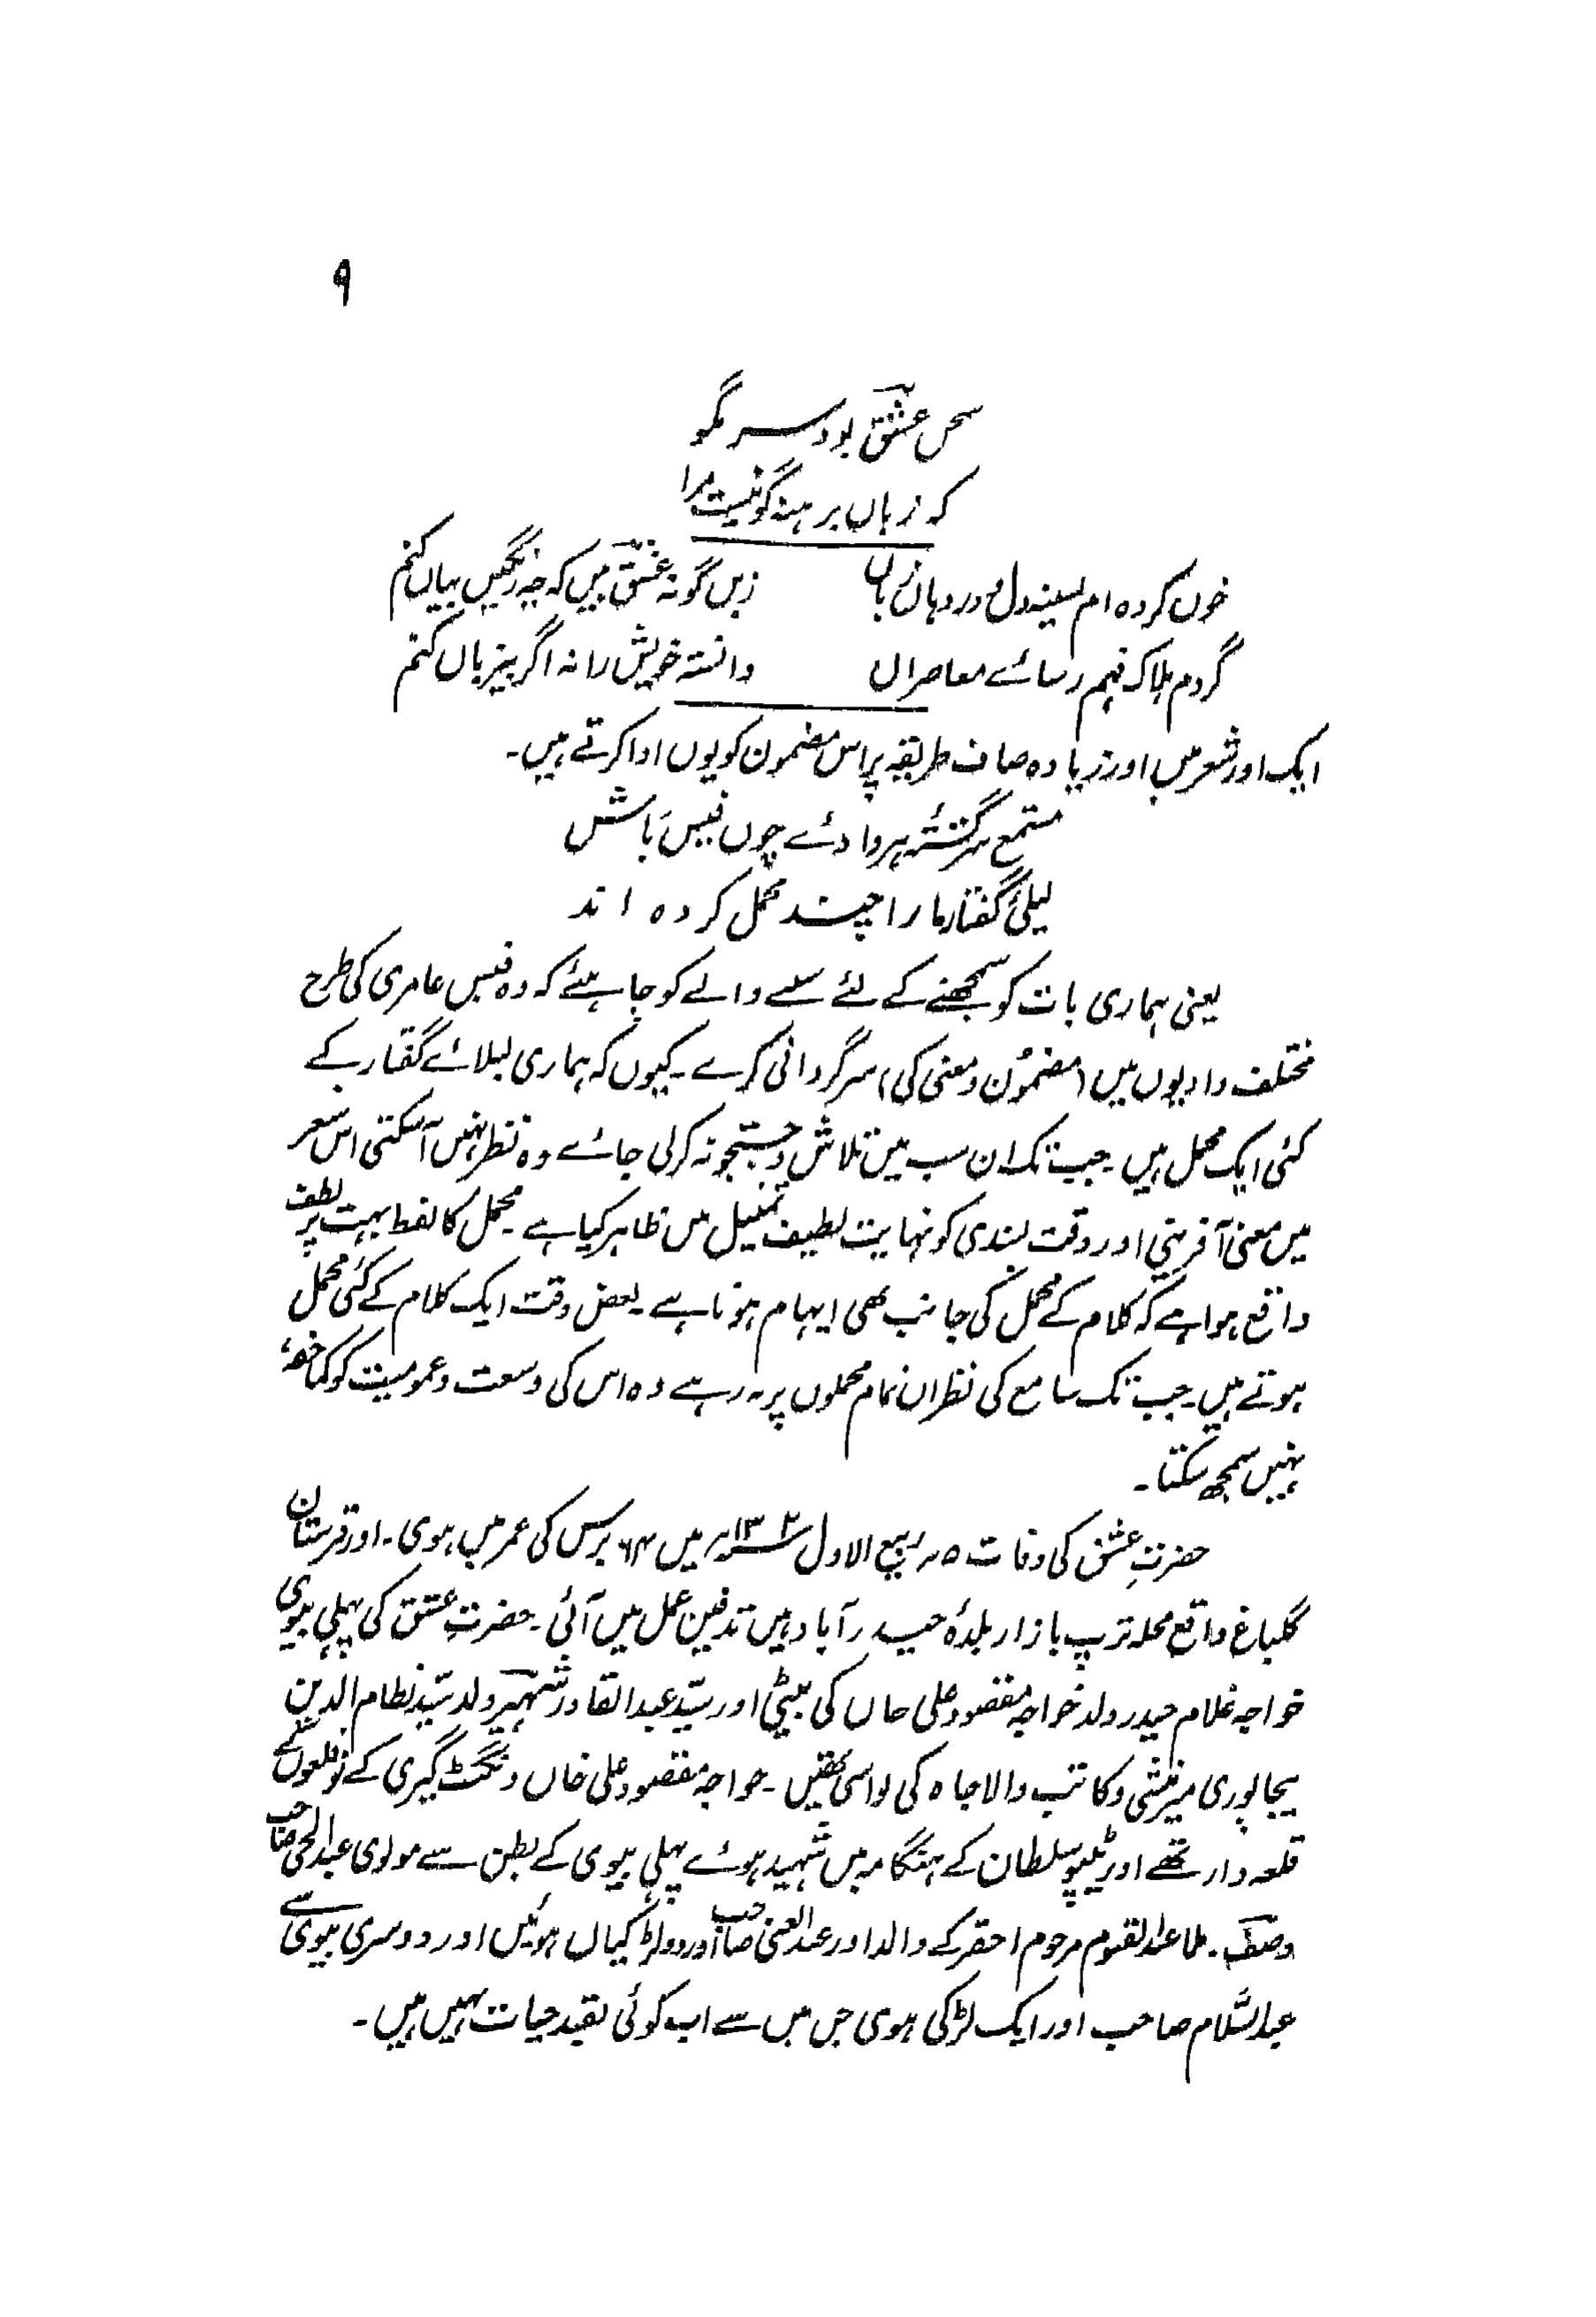 ۹
سخن عشق بود سر مگو
کہ زباں برہنہ گو نیست مرا
خوں کردہ ام بسینہ دل و در دہاں زباں زیں گونہ عشق بیں کہ چہ رنگیں بیاں کنم
گردم ہلاک فہم رسائے معاصراں دانستہ خویش را نہ اگر بیزباں کنم
ایک اور شعر میں اور زیادہ صاف طریقہ پر اس مضمون کو یوں ادا کرتے ہیں۔
مستمع سرگشتۂ ہر وادئے چوں قیس باش
لیلیٔ گفتار ما را چند محمل کردہ اند
یعنی ہماری بات کو سمجھنے کے لئے سننے والے کو چاہئے کہ وہ قیس عامری کی طرح
مختلف وادیوں میں (مضمون و معنی کی) سرگردانی کرے۔ کیوں کہ ہماری لیلائے گفتار کے
کئی ایک محمل ہیں۔ جب تک ان سب میں تلاش و جستجو نہ کرلی جائے وہ نظر نہیں آسکتی اس شعر
میں معنی آفرینی اور دقت پسندی کو نہایت لطیف تمثیل میں ظاہر کیا ہے۔ محمل کا لفظ بہت پر لطف
واقع ہوا ہے کہ کلام کے محمل کی جانب بھی ایہام ہوتا ہے۔ بعض وقت ایک کلام کے کئی محمل
ہوتے ہیں۔ جب تک سامع کی نظر ان تمام محملوں پر نہ رہے وہ اس کی وسعت و عمومیت کو کماحقہٗ
نہیں سمجھ سکتا۔
حضرتِ عشق کی وفات ۵؍ ربیع الاول ۱۳۰۲ھ میں ۶۴ برس کی عمر میں ہوی۔ اور قبرستان
گلباغ واقع محلہ ترپ بازار بلدۂ حیدرآباد میں تدفین عمل میں آئی۔ حضرتِ عشق کی پہلی بیوی
خواجہ غلام حیدر ولد خواجہ مقصود علی خاں کی بیٹی اور سید عبدالقادر شہیر ولد سید نظام الدین
بیجاپوری میر منشی و کاتب والاجاہ کی نواسی تھیں۔ خواجہ مقصود علی خاں ونکٹ گیری کے نو قلعوں کے
قلعہ دار تھے اور ٹیپو سلطان کے ہنگامہ میں شہید ہوئے پہلی بیوی کے بطن سے مولوی عبدالحی صاحب
وصف۔ ملا عبدالقیوم مرحوم احقر کے والد اور عبدالغنی صاحب اور دو لڑکیاں ہوئیں اور دوسری بیوی سے
عبدالسّلام صاحب اور ایک لڑکی ہوی جن میں سے اب کوئی بقید حیات نہیں ہیں۔